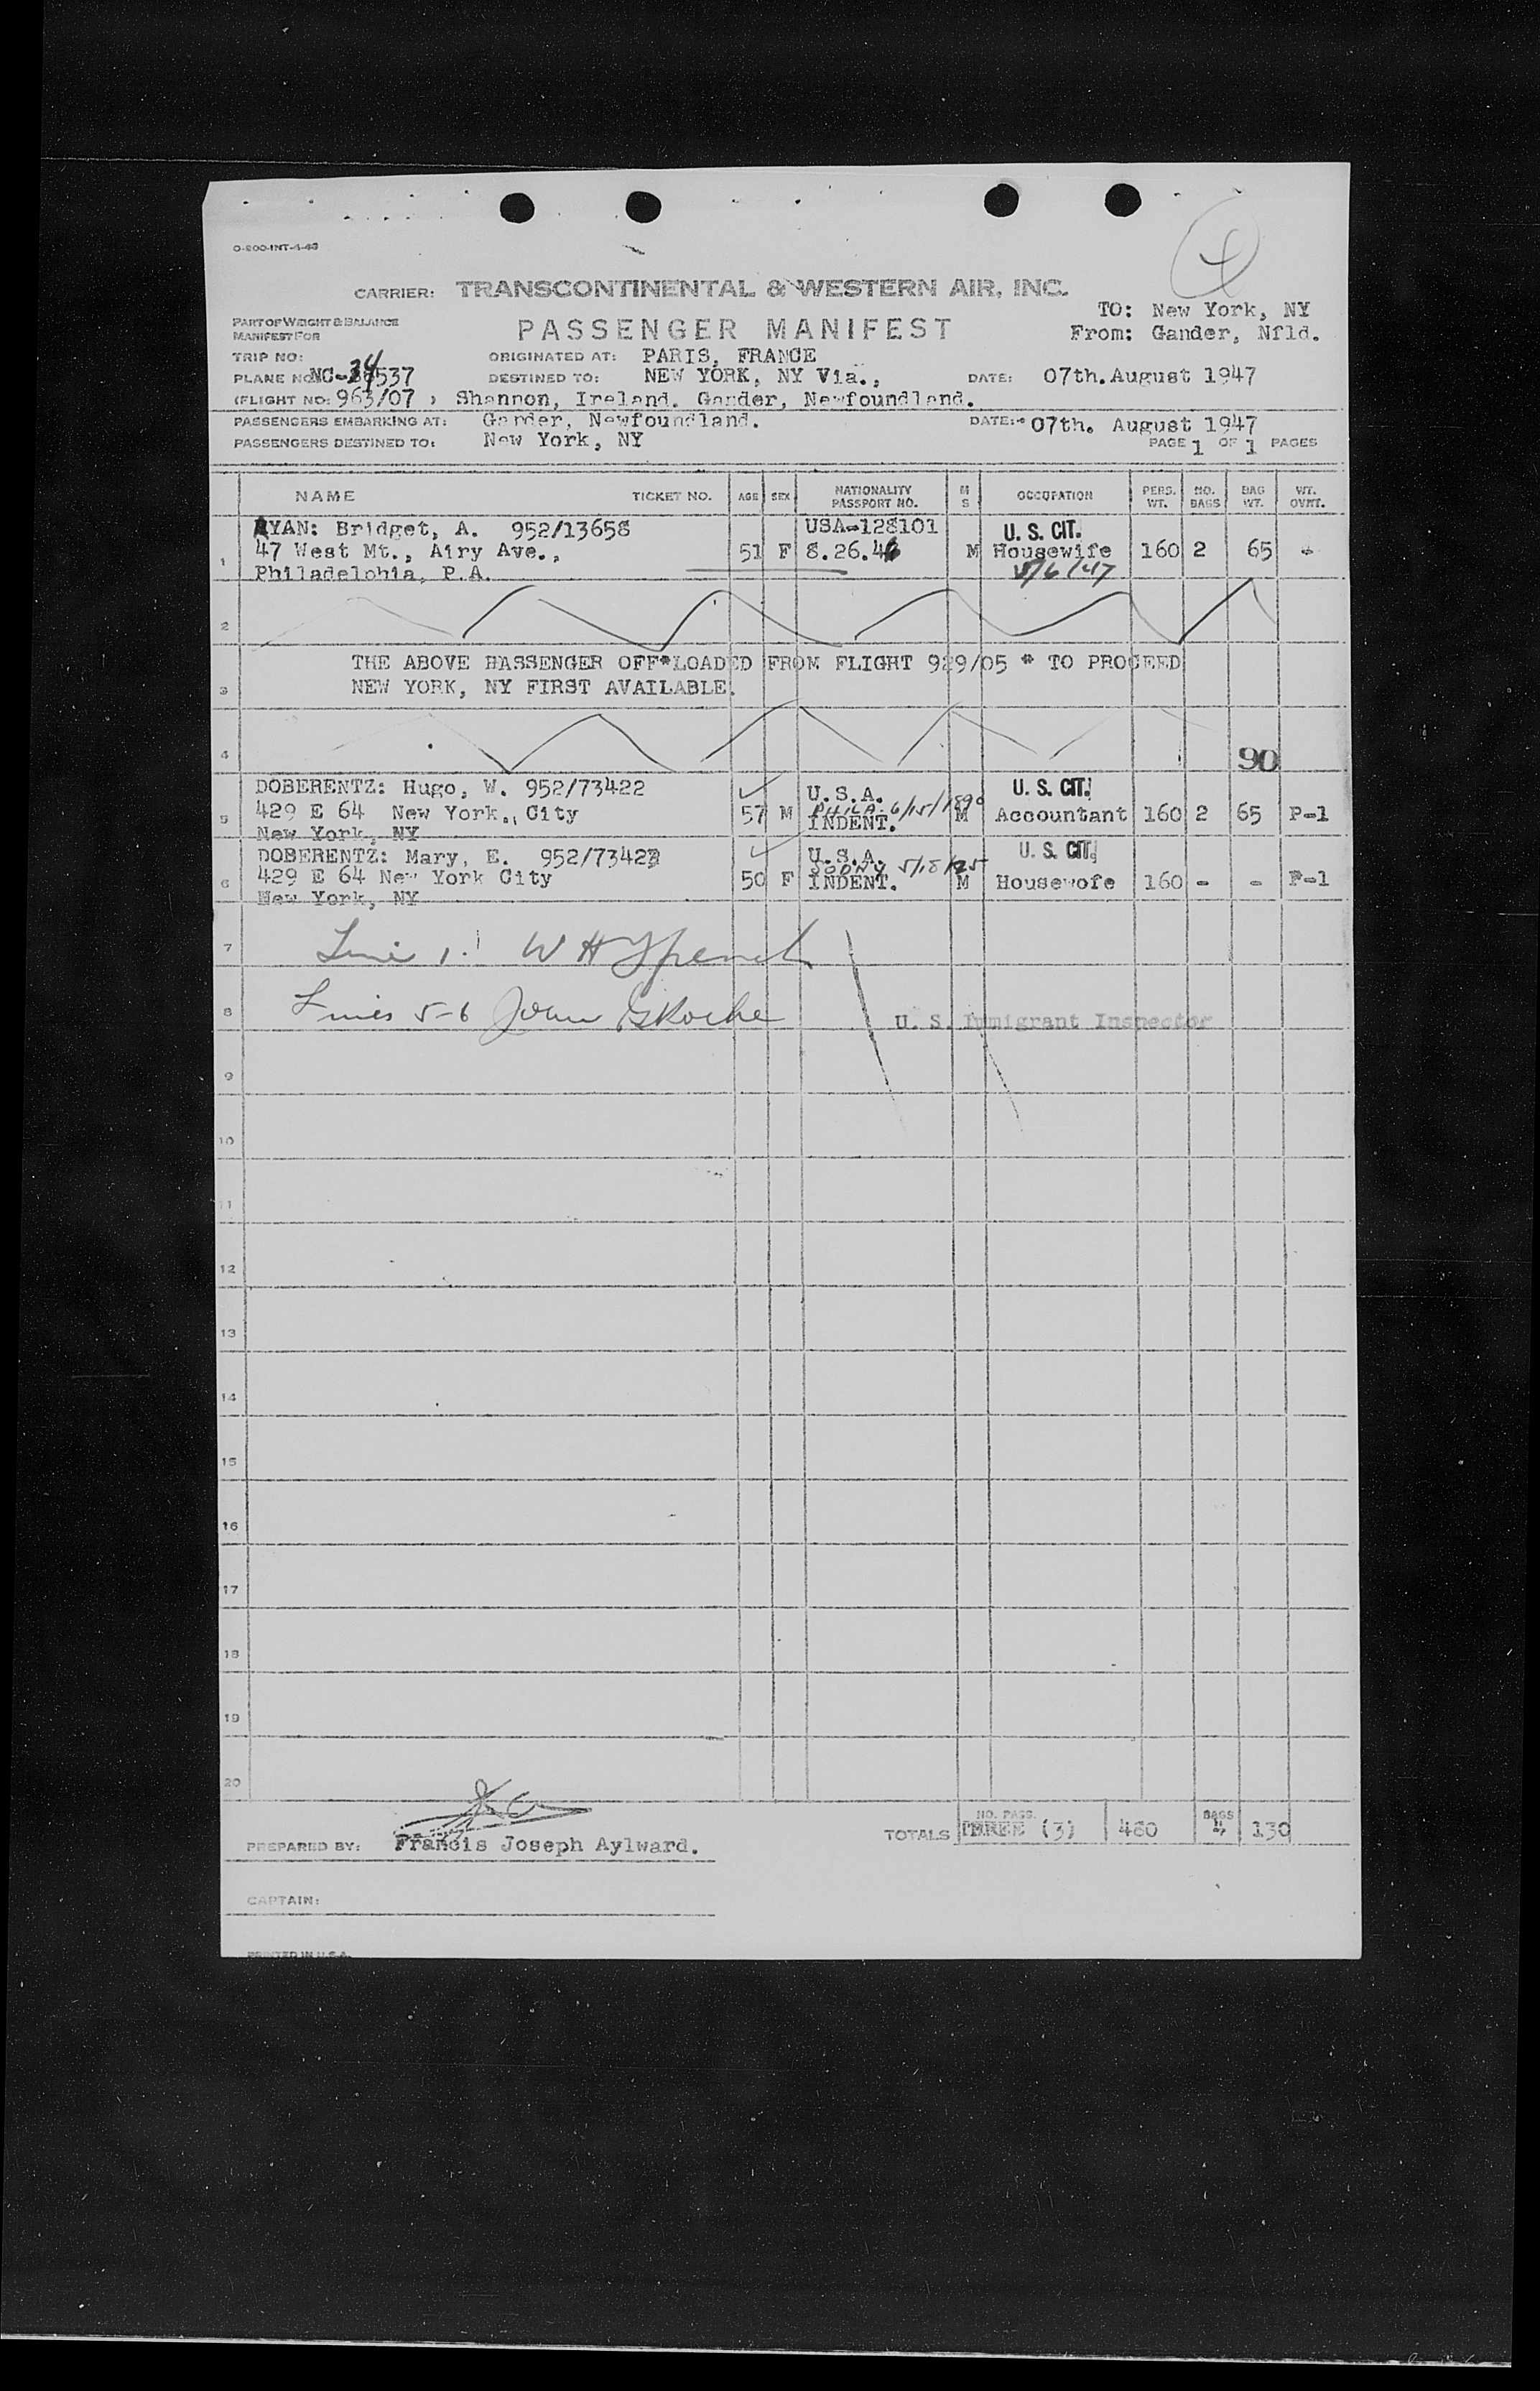 O-200-INT-4-46
4
CARRIER: TRANSCONTINENTAL & WESTERN AIR, INC.
TO: New York, NY
PART OF WEIGHT & BALANCE
MANIFEST FOR
PASSENGER MANIFEST
From: Gander, Nfld.
TRIP NO: ORIGINATED AT: PARIS, FRANCE
PLANE NO: NC-34537 DESTINED TO: NEW YORK, NY Via., DATE: 07th. August 1947
(FLIGHT NO: 963/07 ) Shannon, Ireland. Gander, Newfoundland.
PASSENGERS EMBARKING AT: Gander, Newfoundland. DATE: 07th. August 1947
PASSENGERS DESTINED TO: New York, NY PAGE 1 OF 1 PAGES
NAME TICKET NO. AGE SEX NATIONALITY PASSPORT NO. M S OCCUPATION PERS. WT. NO. BAGS BAG WT. WT. OVNT.
RYAN: Bridget, A. 952/13658 USA-128101 U. S. CIT.
1 47 West Mt., Airy Ave., 51 F 8.26.46 M Housewife 160 2 65 -
Philadelphia, P.A. 8/6/47
2
THE ABOVE PASSENGER OFF*LOADED FROM FLIGHT 929/05 * TO PROCEED
3 NEW YORK, NY FIRST AVAILABLE.
4 90
DOBERENTZ: Hugo, W. 952/73422 U.S.A. U. S. CIT.
PHILA 6/15/1890
5 429 E 64 New York., City 57 M INDENT. M Accountant 160 2 65 P-1
New York, NY
DOBERENTZ: Mary, E. 952/73423 U.S.A. U. S. CIT.
5/18/25
6 429 E 64 New York City 50 F INDENT. M Housewofe 160 - - P-1
New York, NY
7 Line 1. W H
8 Lines 5-6 John G Roche U. S. Immigrant Inspector
9
10
11
12
13
14
15
16
17
18
19
20
TOTALS NO. PASS. THREE (3) 480 BAGS 4 130
PREPARED BY: Francis Joseph Aylward.
CAPTAIN:
PRINTED IN U.S.A.